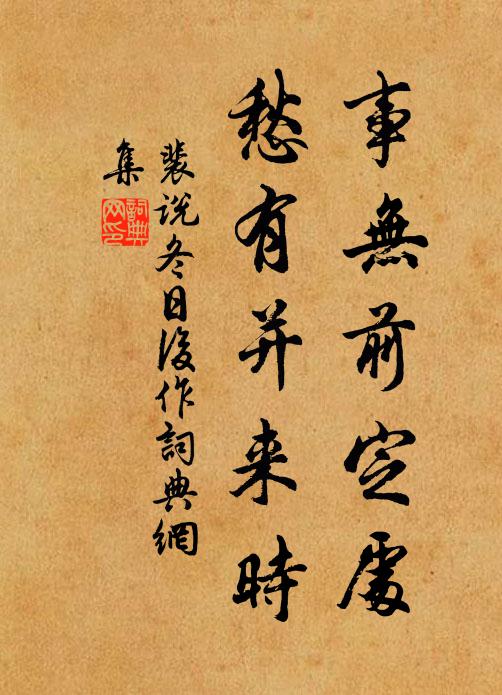 事無前定處
愁有并来時
裴説冬日後作詞典網
集
詞典
网印